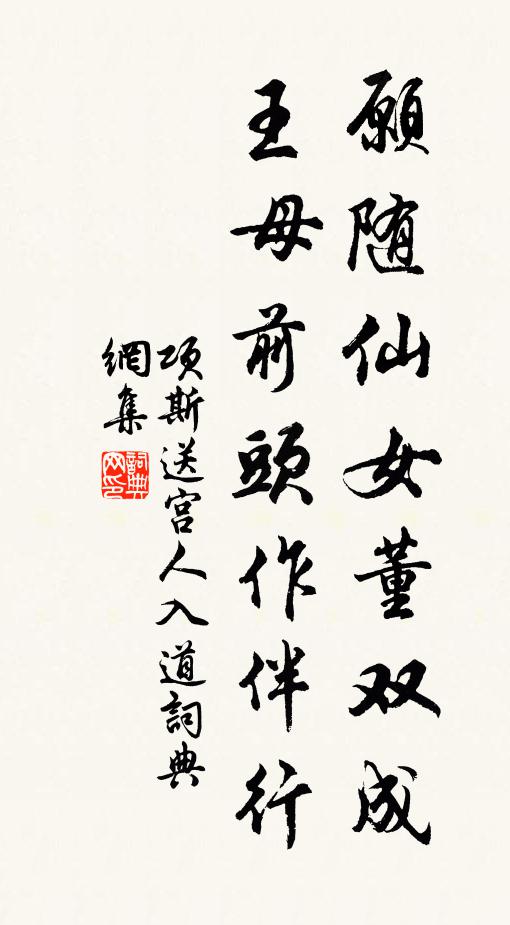 願随仙女董双成
王母前頭作伴行
项斯送宫人入道詞典
網集
詞典
网印